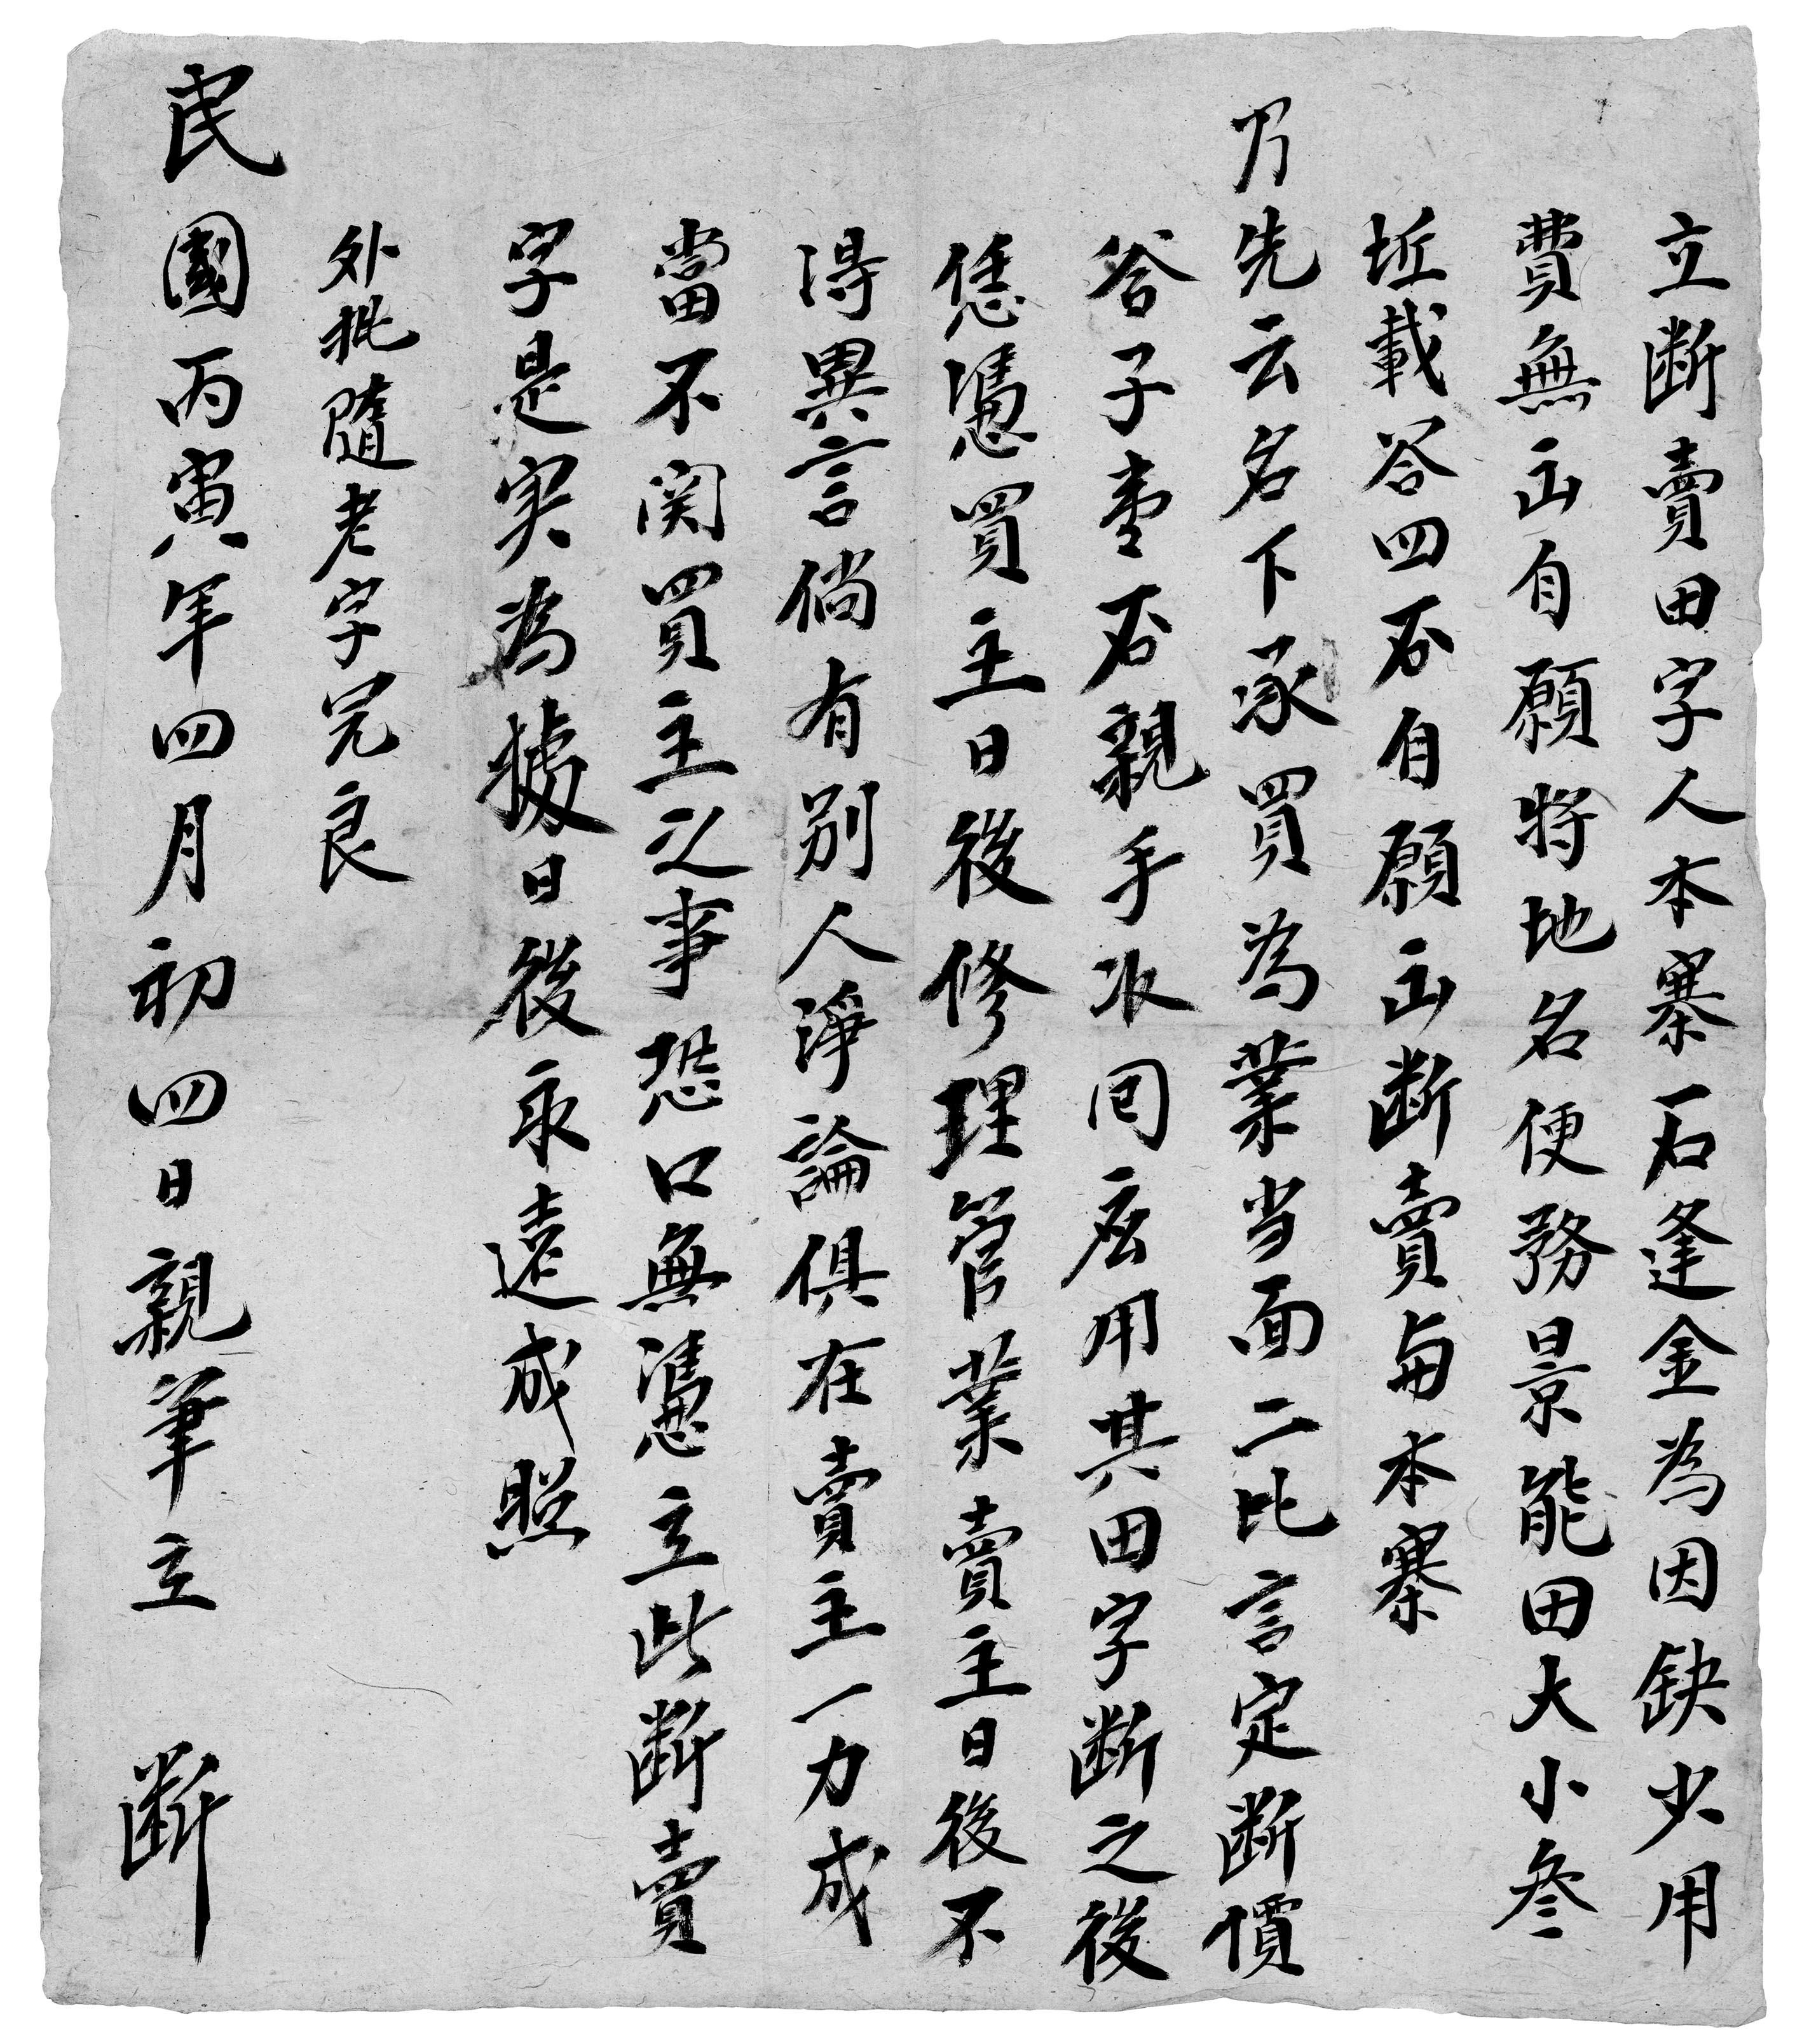 立断賣田字人本寨石逢金為因缺少用
費無出自願将地名便務景能田大小叁
坵載谷四石自願出断賣与本寨
乃先云名下承買為業当面二比言定断價
谷子壹石親手收回応用其田字断之後
恁憑買主日後修理管業賣主日後不
得異言倘有别人淨論俱在賣主一力成
當不関買主之事恐口無憑立此断賣
字是实為據日後永遠成照
外批隨老字完良
民國丙寅年四月初四日親筆立 断